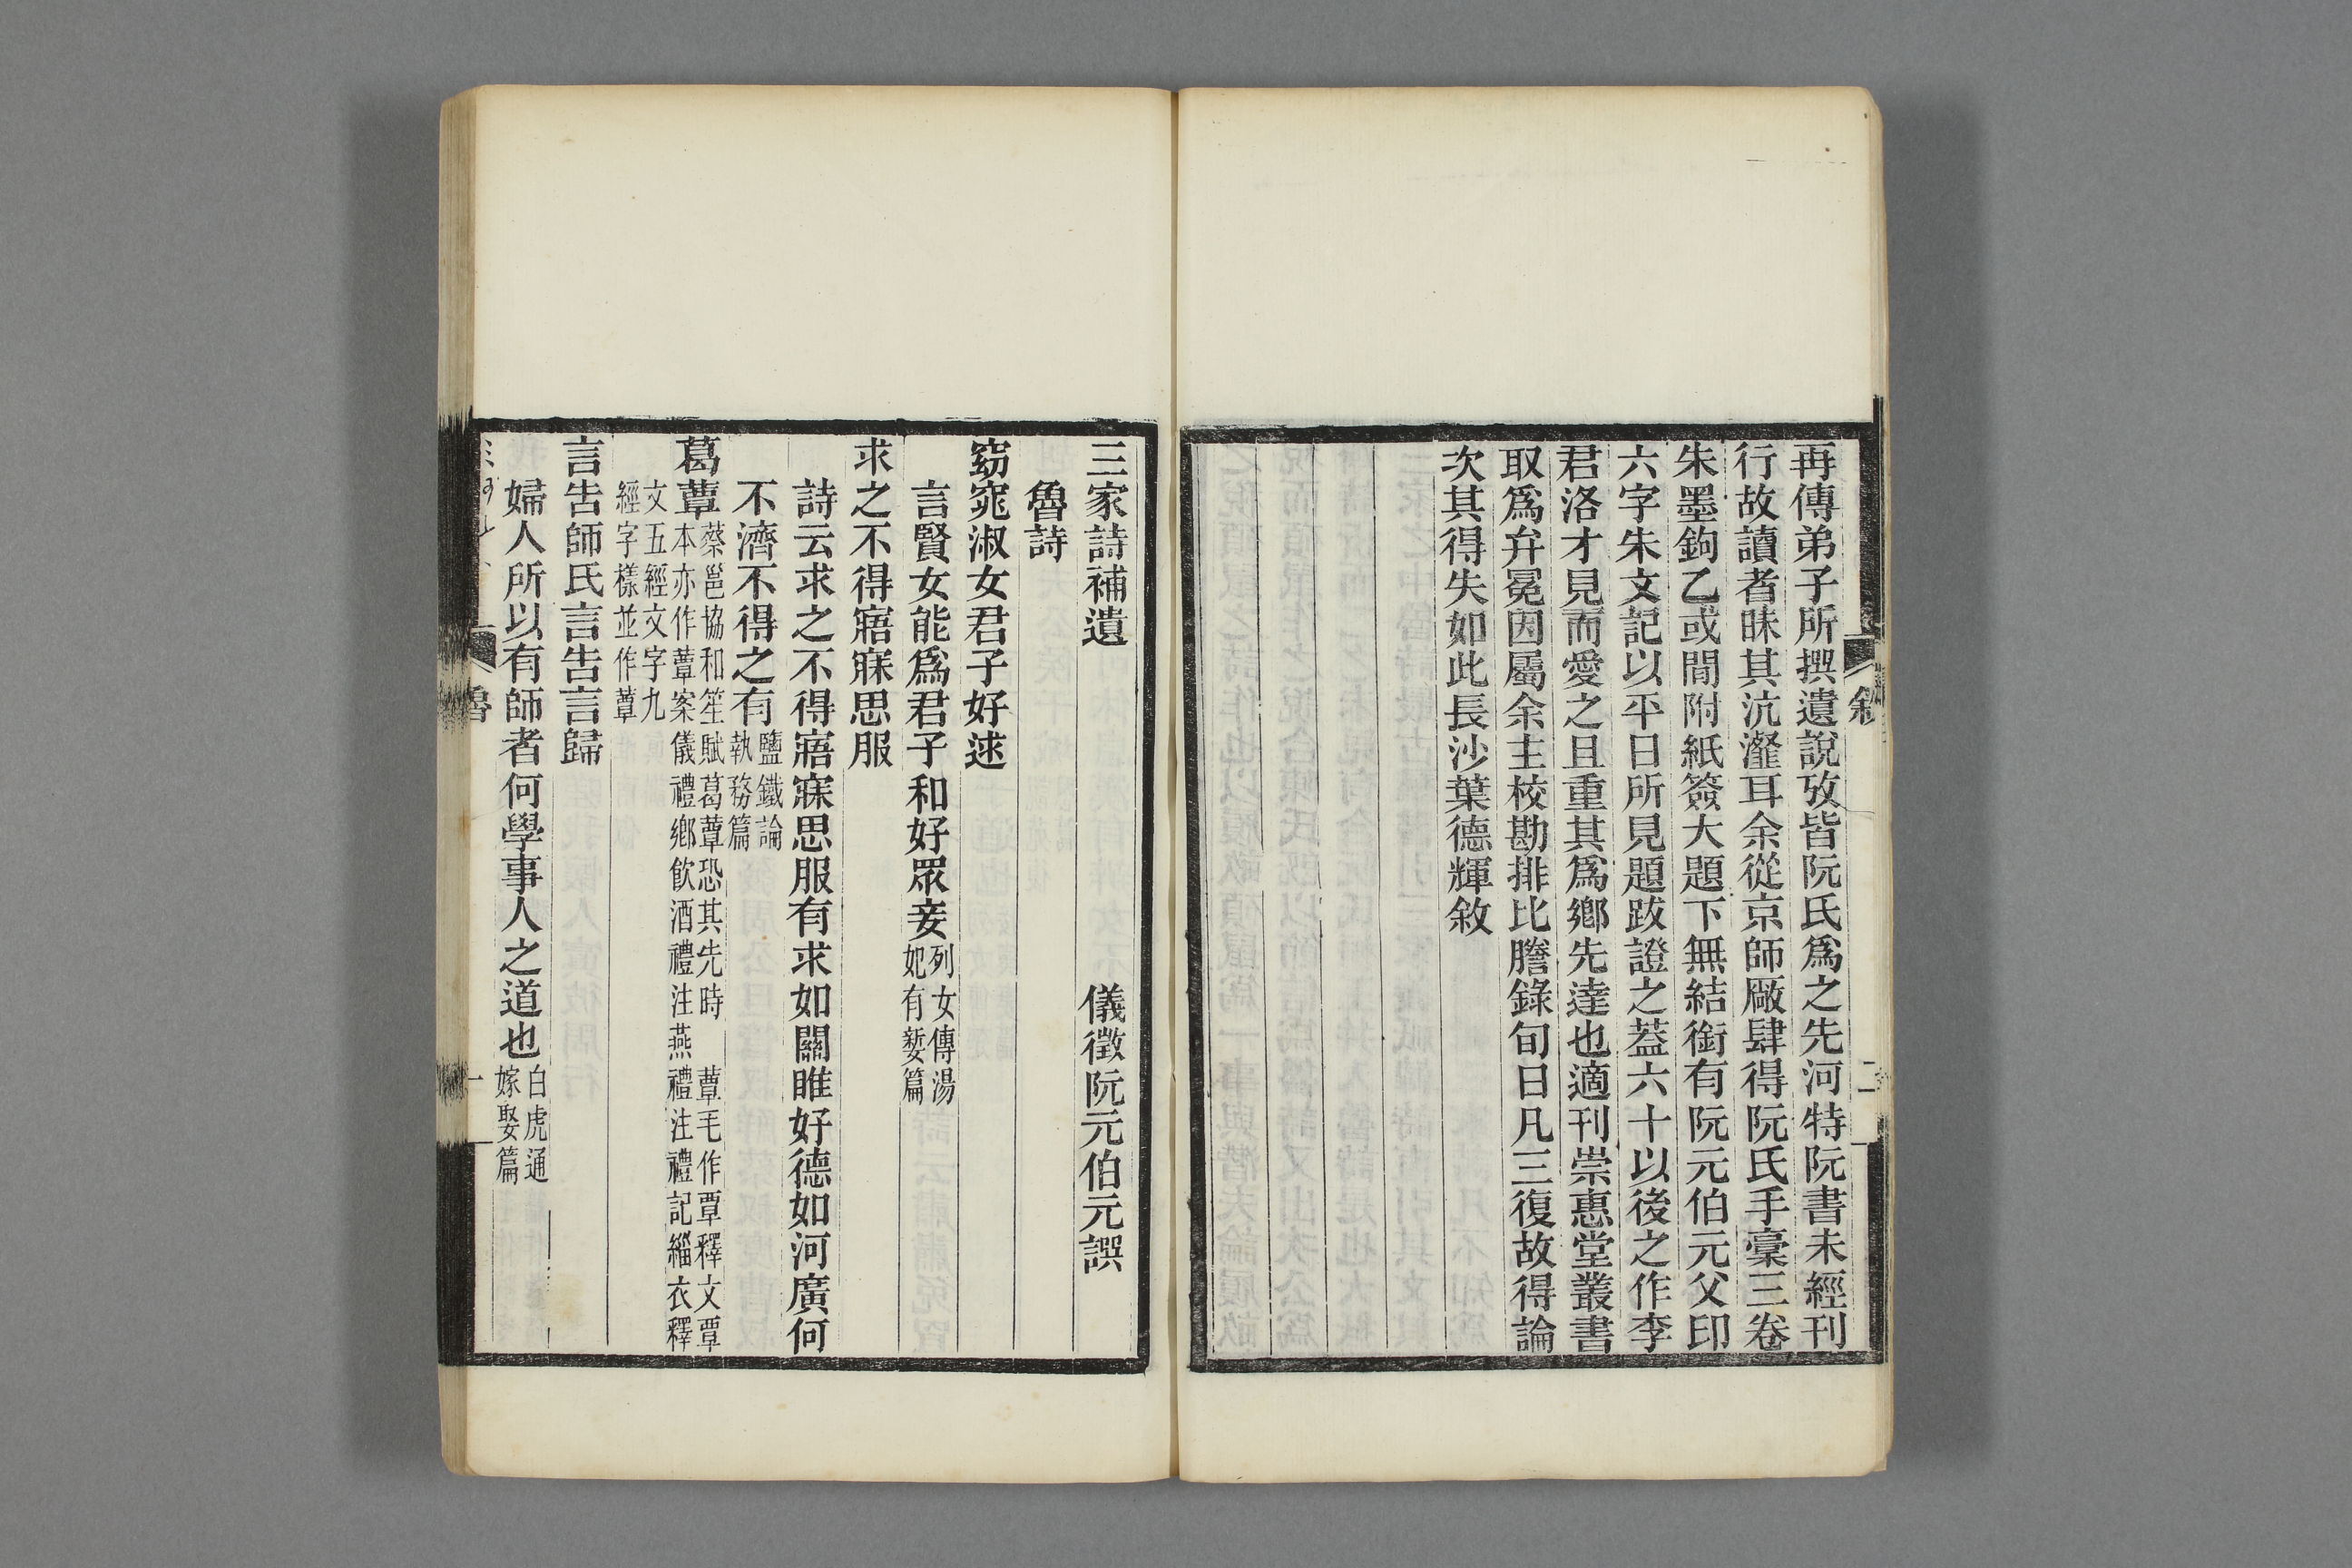 再傳弟子所撰遺說攷皆阮氏爲之先河特阮書未經刊
行故讀者昧其沆瀣耳余從京師厰肆得阮氏手藁三卷
朱墨鉤乙或間附紙簽大題下無結銜有阮元伯元父印
六字朱文記以平日所見題跋證之葢六十以後之作李
君洛才見而愛之且重其爲鄉先達也適刊崇惪堂叢書
取爲弁冕因屬余主校勘排比謄錄旬日凡三復故得論
次其得失如此長沙葉德輝敘
敘
二
三家詩補遺 儀徵阮元伯元譔
魯詩
窈窕淑女君子好逑
言賢女能爲君子和好眾妾列女傳湯妃有㜪篇
求之不得寤寐思服
詩云求之不得寤寐思服有求如關雎好德如河廣何
不濟不得之有鹽鐵論執務篇
葛蕈蔡邕協和笙賦葛蕈恐其先時 蕈毛作覃釋文覃
本亦作蕈案儀禮鄉飲酒禮注燕禮注禮記緇衣釋
文五經文字九
經字樣並作蕈
言告師氏言告言歸
婦人所以有師者何學事人之道也白虎通嫁娶篇
魯
一